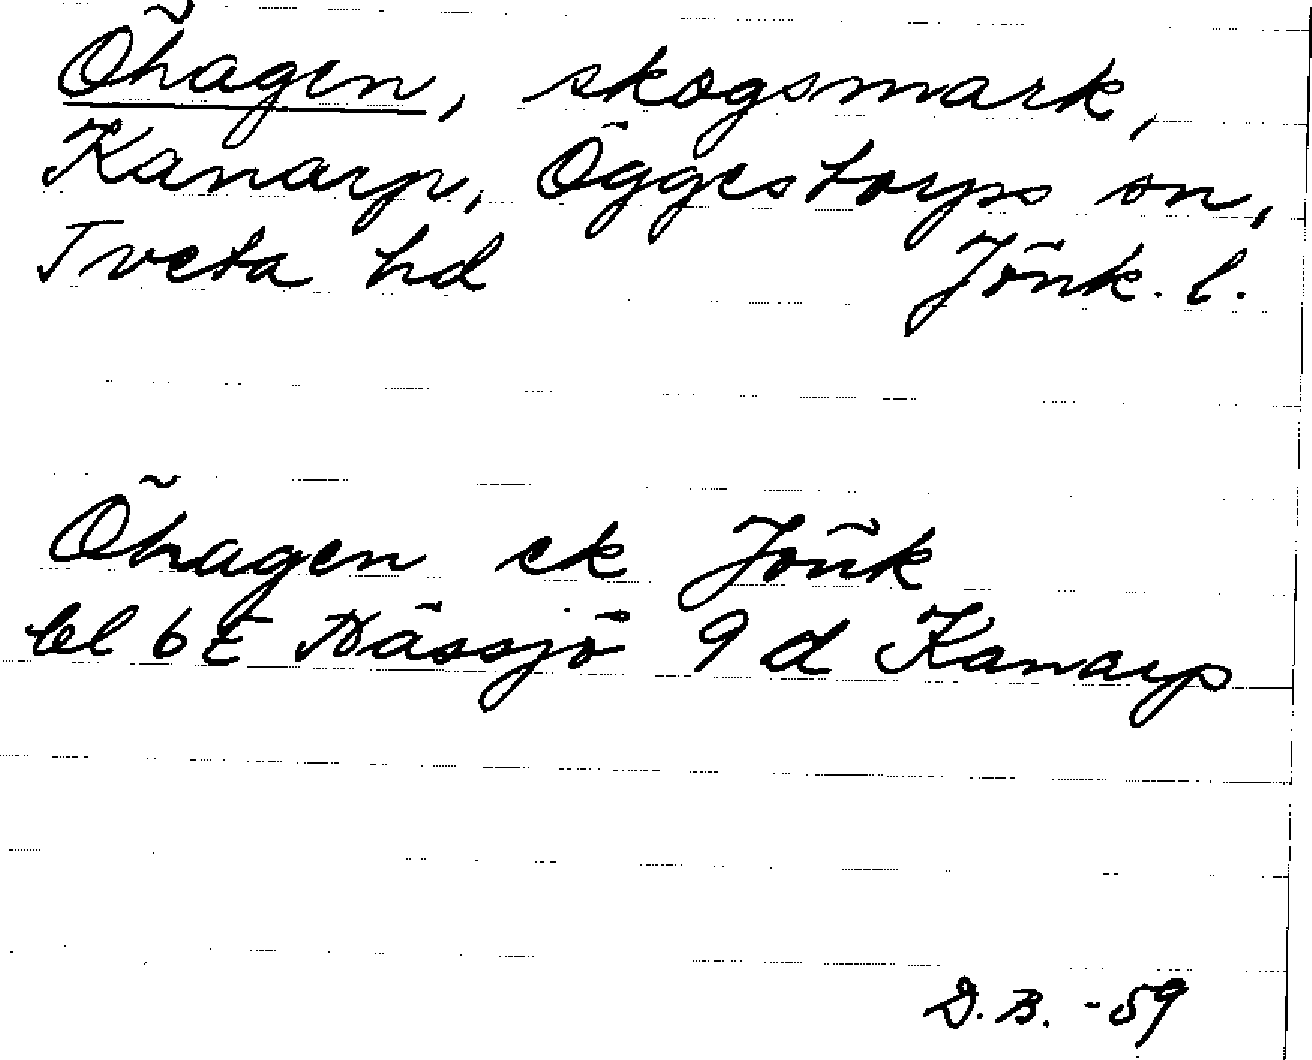 Öhagen, skogsmark,
Kanarp, Öggestorps sn,
Tveta hd Jönk. l.
Öhagen ek Jönk
bl 6E Nässjö 9d Kanarp
D.B. -59